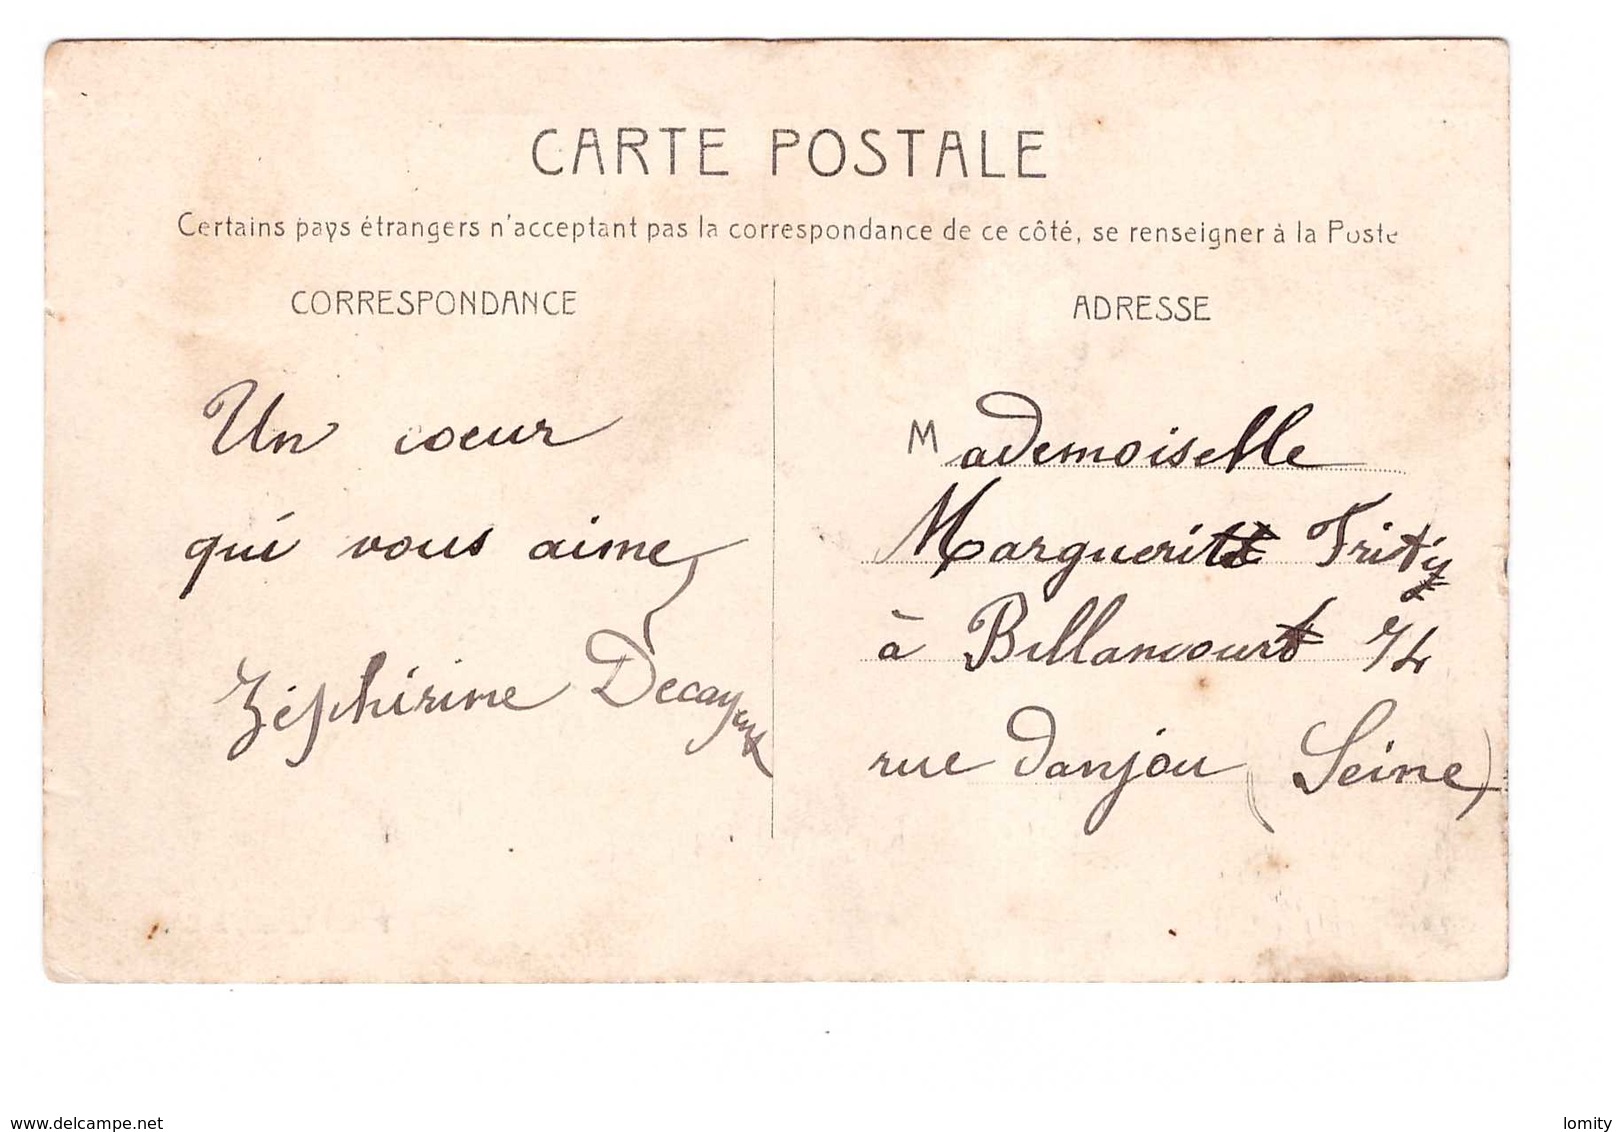 CARTE POSTALE
Certains pays étrangers n'acceptant pas la correspondance de ce côté, se renseigner à la Poste
CORRESPONDANCE
Un coeur
qui vous aime
Zéphirine
ADRESSE
Mademoiselle
Marguerite
à Billancourt 74
rue Danjou (Seine)
www.delcampe.net
lomity